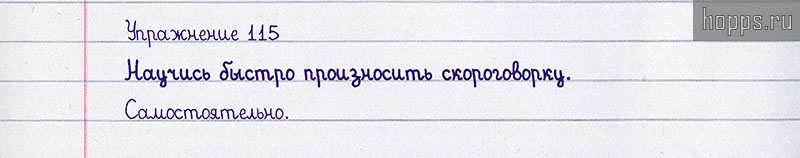 hopps.ru
Упражнение 115
Научись быстро произносить скороговорку.
Самостоятельно.